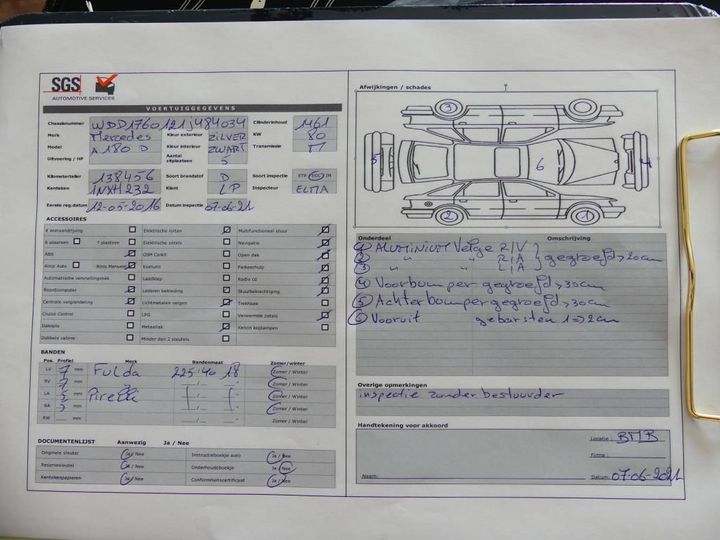 SGS
AUTOMOTIVE SERVICES
VOERTUIGGEGEVENS
Chassisnummer WDD1760121J484034 Cilinderinhoud 1461
Merk Mercedes Kleur exterieur ZILVER KW 80
Model A 180 D Kleur interieur ZWART Transmissie M
Uitvoering / HP Aantal zitplaatsen 5
Kilometerteller 138456 Soort brandstof D Soort inspectie ETP EOC IM
Kenteken 1NXH232 Klant LP Inspecteur ELMA
Eerste reg.datum 12-05-2016 Datum inspectie 07-06-21
ACCESSOIRES
4 wielaandrijving Elektrische ruiten Multifunctioneel stuur
6 plaatsen 7 plaatsen Elektrische zetels Navigatie
ABS GSM Carkit Open dak
Airco Auto Airco Manueel Parkeerhulp
Automatische versnellingsbak Laadklep Radio cd
Boordcomputer Lederen bekleding Stuurbekrachtiging
Centrale vergrendeling Lichtmetalen velgen Trekhaak
Cruise Control LPG Verwarmde zetels
Dakrails Metaallak Xenon koplampen
Dubbele cabine Minder dan 2 sleutels
BANDEN
Pos. Profiel Merk Bandenmaat Zomer/winter
LV 7 mm Fulda 225/40 18 Zomer / Winter
RV 7 mm Zomer / Winter
LA 5 mm Pirelli Zomer / Winter
RA 5 mm Zomer / Winter
RW mm Zomer / Winter
DOCUMENTENLIJST Aanwezig Ja / Nee
Originele sleutel Ja / Nee Instructieboekje auto Ja / Nee
Reservesleutel Ja / Nee Onderhoudsboekje Ja / Nee
Kentekenpapieren Ja / Nee Conformiteitscertificaat Ja / Nee
Afwijkingen / schades
3
5 6 4
2 1
Onderdeel Omschrijving
1 ALUMINIUM Velge R/V
2 " " R/A } gegroefd > 20cm
3 " " L/A
4 Voorbumper gegroefd > 30cm
5 Achterbumper gegroefd > 30cm
6 Vooruit gebarsten 1=>2cm
Overige opmerkingen
inspectie zonder bestuurder
Handtekening voor akkoord
Locatie : BMR
Firma :
Naam: Datum: 07-06-2021